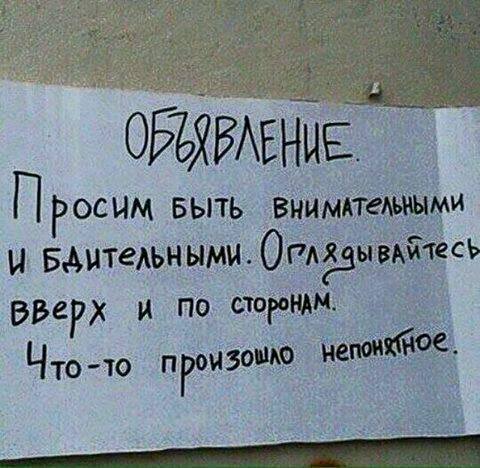 ОБЪЯВЛЕНИЕ.
Просим быть внимательными
и бдительными. Оглядывайтесь
вверх и по сторонам.
Что-то произошло непонятное.